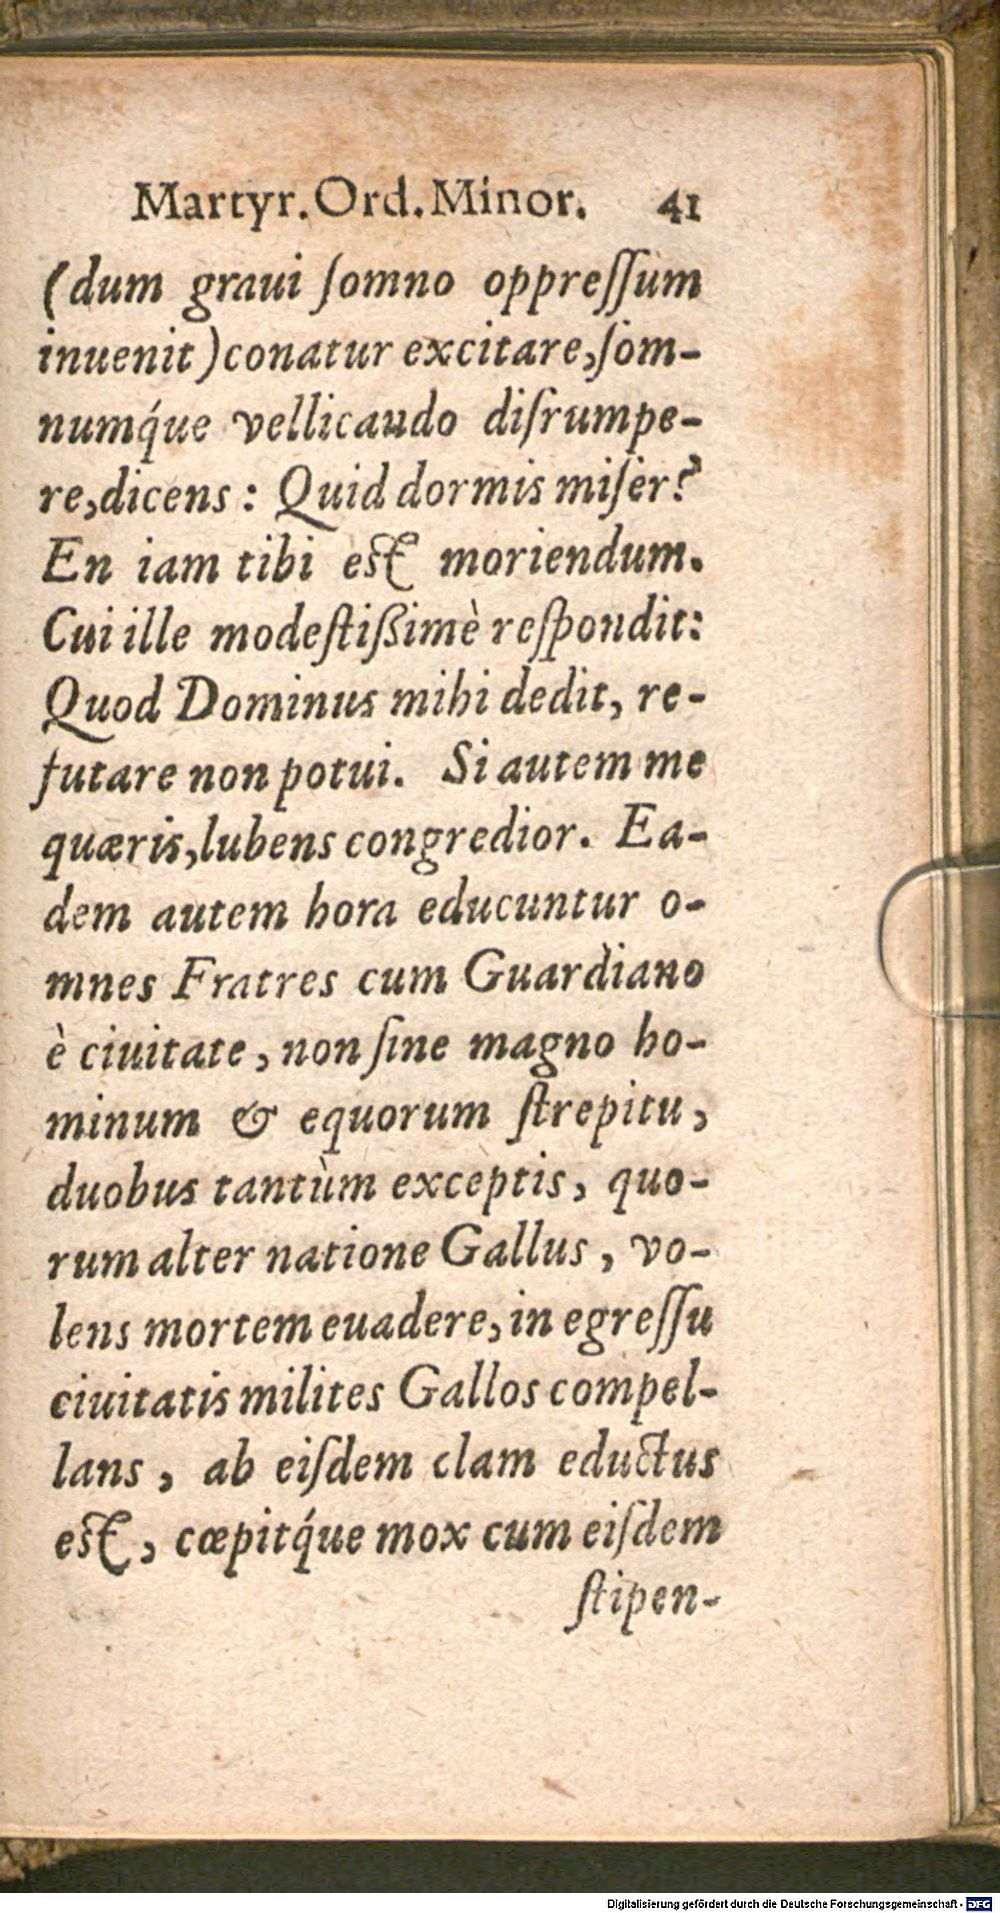 Martyr. Ord. Minor. 41
(dum graui ſomno oppreſſum
inuenit) conatur excitare, ſom-
numq́ue vellicando diſrumpe-
re, dicens: Quid dormis miſer?
En iam tibi eſt moriendum.
Cui ille modeſtißimè reſpondit:
Quod Dominus mihi dedit, re-
futare non potui. Si autem me
quæris, lubens congredior. Ea-
dem autem hora educuntur o-
mnes Fratres cum Guardiano
è ciuitate, non ſine magno ho-
minum & equorum ſtrepitu,
duobus tantùm exceptis, quo-
rum alter natione Gallus, vo-
lens mortem euadere, in egreſſu
ciuitatis milites Gallos compel-
lans, ab eiſdem clam eductus
eſt, cœpitq́ue mox cum eiſdem
ſtipen-
Digitalisierung gefördert durch die Deutsche Forschungsgemeinschaft - DFG